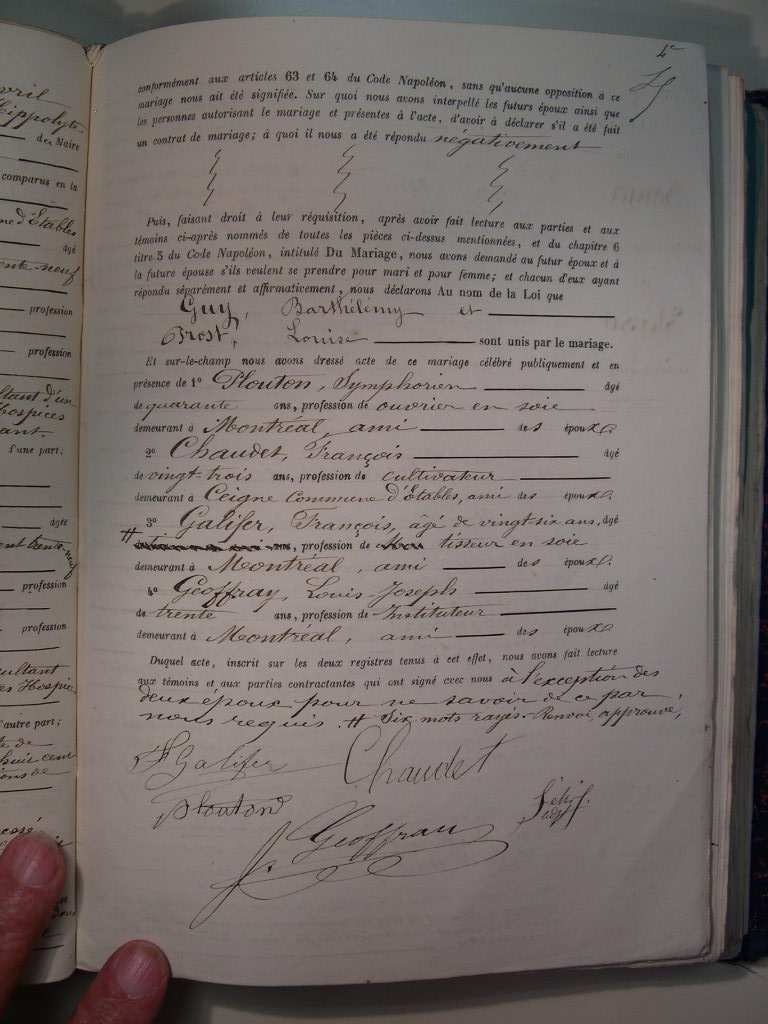 vril
Hippolyte
du Maire
comparus en la
me d'Etables
âgé
ente-neuf
profession
profession
ultant d'un
Hospices
ant.
d'une part;
âgée
ent trente-neuf
profession
profession
ésultant
es Hospices
d'autre part;
te de
huit cent
tions de
4e
conformément aux articles 63 et 64 du Code Napoléon, sans qu'aucune opposition à ce
mariage nous ait été signifiée. Sur quoi nous avons interpellé les futurs époux ainsi que
les personnes autorisant le mariage et présentes à l'acte, d'avoir à déclarer s'il a été fait
un contrat de mariage; à quoi il nous a été répondu négativement
Puis, faisant droit à leur réquisition, après avoir fait lecture aux parties et aux
témoins ci-après nommés de toutes les pièces ci-dessus mentionnées, et du chapitre 6
titre 5 du Code Napoléon, intitulé Du Mariage, nous avons demandé au futur époux et à
la future épouse s'ils veulent se prendre pour mari et pour femme; et chacun d'eux ayant
répondu séparément et affirmativement, nous déclarons Au nom de la Loi que
Guy, Barthélémy et
Prost, Louise sont unis par le mariage.
Et sur-le-champ nous avons dressé acte de ce mariage célébré publiquement et en
présence de 1º Plouton, Symphorien âgé
de quarante ans, profession de ouvrier en soie
demeurant à Montréal, ami des époux.
2º Chaudet, François âgé
de vingt-trois ans, profession de cultivateur
demeurant à Ceigne Commune d'Etables, ami des époux.
3º Galifer, François, âgé de vingt-six ans, âgé
# ans, profession de tisseur en soie
demeurant à Montréal, ami des époux.
4º Geoffray, Louis-Joseph âgé
de trente ans, profession de Instituteur
demeurant à Montréal, ami des époux
Duquel acte, inscrit sur les deux registres tenus à cet effet, nous avons fait lecture
aux témoins et aux parties contractantes qui ont signé avec nous à l'exception des
deux époux pour ne savoir de ce par
nous requis. # Six mots rayés. Renvoi approuvé,
Galifer Chaudet
Plouton
J. Geoffray